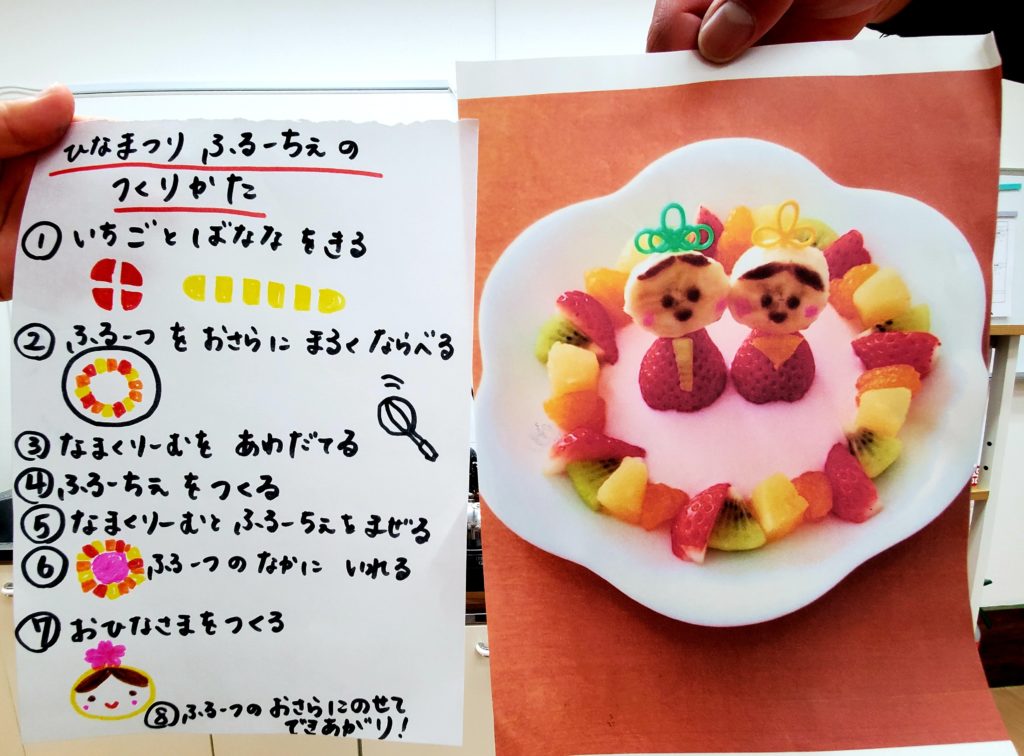 ひなまつり ふるーちぇの
つくりかた
① いちごと ばななをきる
② ふるーつを おさらに まるくならべる
③ なまくりーむを あわだてる
④ ふるーちぇをつくる
⑤ なまくりーむと ふるーちぇをまぜる
⑥ ふるーつのなかに いれる
⑦ おひなさまをつくる
⑧ ふるーつのおさらにのせて
できあがり!